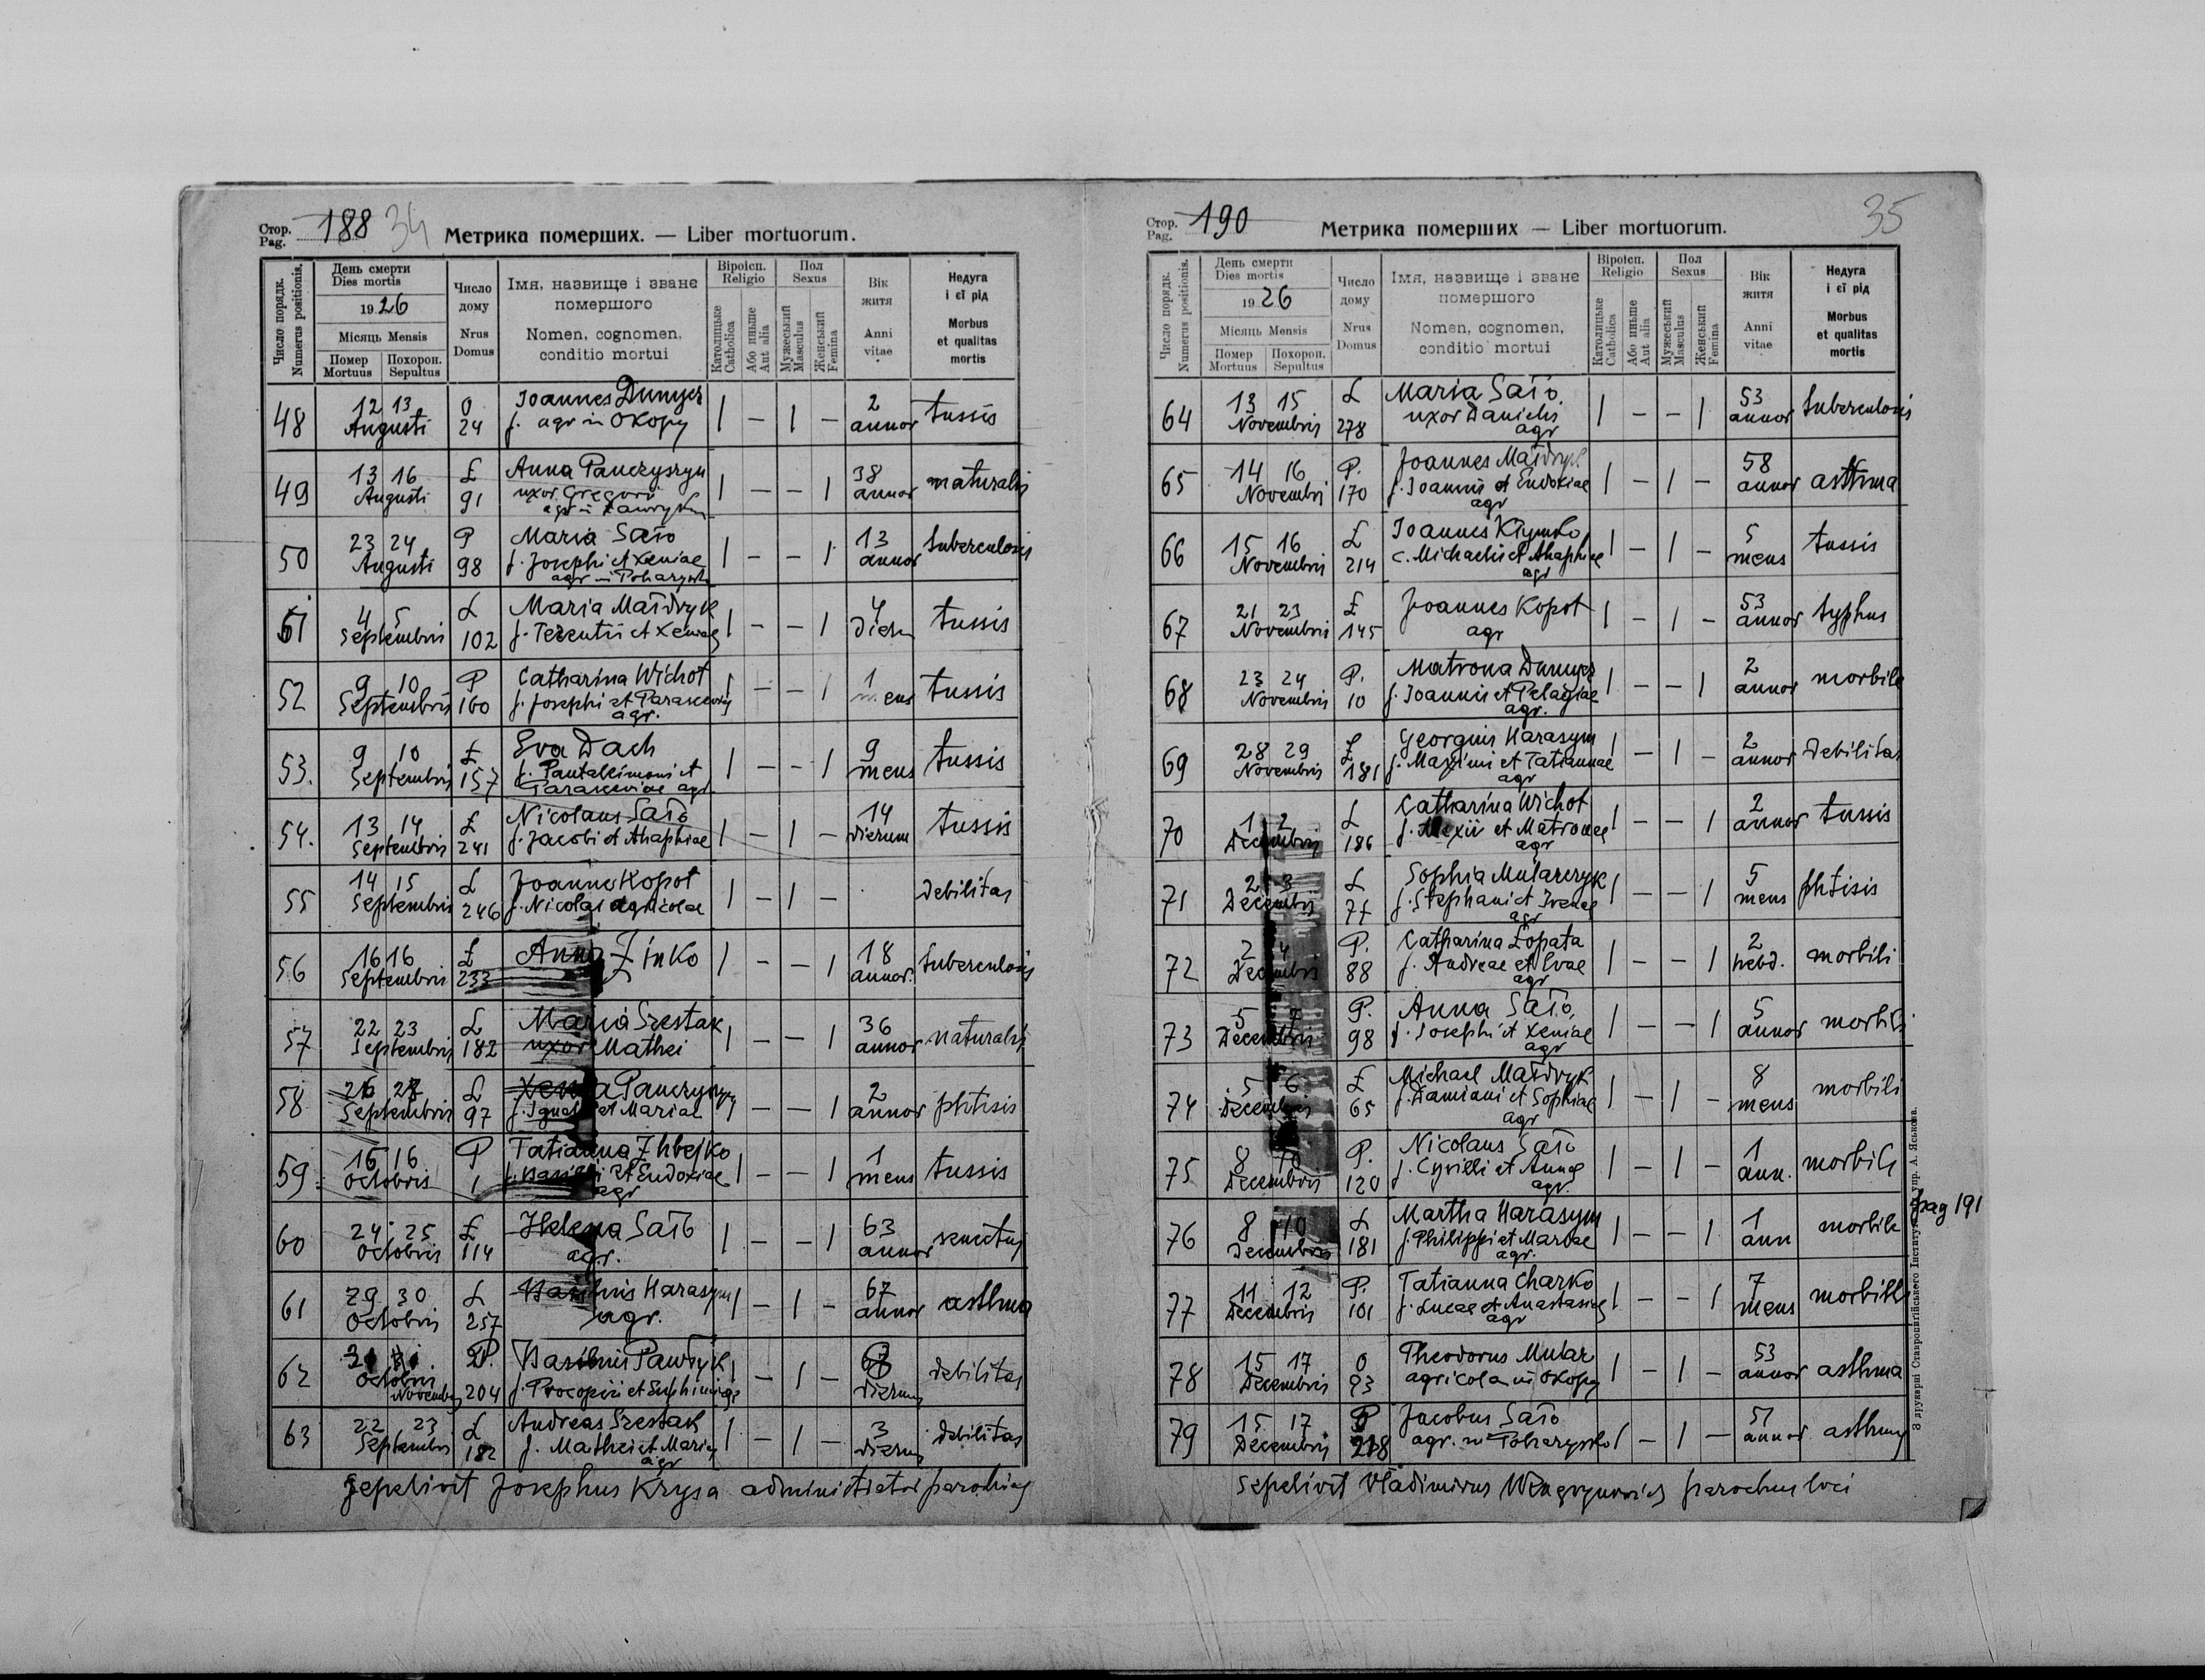 Стор. Pag. 188 34 Метрика померших. — Liber mortuorum.
Число порядк. Numerus positionis.
День смерти Dies mortis
1926
Місяць Mensis
Помер Mortuus Похорон. Sepultus
Число дому Nrus Domus
Імя, назвище і зване помершого
Nomen, cognomen, conditio mortui
Віроісп. Religio
Католицьке Catholica
Або иньше Aut alia
Пол Sexus
Мужеський Masculus
Женський Femina
Вік житя Anni vitae
Недуга і єї рід
Morbus et qualitas mortis
48 12 13 Augusti O 24 Joannes Dumycz f. agr in Okopy | — | — 2 annor tussis
49 13 16 Augusti Ł 91 Anna Panczyszyn uxor Gregorii agr in | — — | 38 annor naturalis
50 23 24 Augusti P 98 Maria Sało f. Josephi et Xeniae agr in | — — | 13 annor tuberculosis
51 4 5 Septembris Ł 102 Maria Małdryk f. Terentii et Xeniae | — — | 4 dierum tussis
52 9 10 Septembris P 160 Catharina Wichot f. Josephi et Parasceviae agr. | — — | 1 mens tussis
53. 9 10 Septembris Ł 157 Eva Dach f. Pantaleimoni et Parasceviae agr. | — — | 9 mens tussis
54. 13 14 Septembris Ł 241 Nicolaus Sało f. Jacobi et Ahaphiae | — | — 14 dierum tussis
55 14 15 Septembris Ł 246 Joannes Kopot f. Nicolai agricolae | — | — debilitas
56 16 16 Septembris Ł 233 Anna Zinko | — — | 18 annor. tuberculosis
57 22 23 Septembris Ł 182 Maria Szestak uxor Mathei | — — | 36 annor naturalis
58 26 27 Septembris Ł 97 Xenia Panczyszyn f. et Mariae | — — | 2 annor phtisis
59. 15 16 Octobris P 1 Tatianna f. Basilii et Eudoxiae agr | — — | 1 mens tussis
60 24 25 Octobris Ł 114 Helena Sało agr. | — — | 63 annor senectus
61 29 30 Octobris Ł 257 Basilius Harasym agr. | — | — 67 annor asthma
62 Octobris Novembris P. 204 Basilius Pawłyk f. Procopii et Euphimiae | — | — dierum debilitas
63 22 23 Septembris Ł 182 Andreas Szestak f. Mathei et Mariae agr | — | — 3 dierum debilitas
Sepelivit Josephus Krysa administrator parochiae
Стор. Pag. 190 Метрика померших — Liber mortuorum. 35
Число порядк. Numerus positionis.
День смерти Dies mortis
1926
Місяць Mensis
Помер Mortuus Похорон. Sepultus
Число дому Nrus Domus
Імя, назвище і зване помершого
Nomen, cognomen, conditio mortui
Віроісп. Religio
Католицьке Catholica
Або иньше Aut alia
Пол Sexus
Мужеський Masculus
Женський Femina
Вік житя Anni vitae
Недуга і єї рід
Morbus et qualitas mortis
64 13 15 Novembris Ł 278 Maria Sało uxor Danielis agr | — — | 53 annor tuberculosis
65 14 16 Novembri P. 170 Joannes Małdryk f. Joannis et Eudoxiae agr | — | — 58 annor asthma
66 15 16 Novembris Ł 214 Joannes Kłymko c. Michaelis et Ahaphiae agr | — | — 5 mens tussis
67 21 23 Novembris Ł 145 Joannes Kopot agr | — | — 53 annor typhus
68 23 24 Novembris P. 10 Matrona Dumycz f. Joannis et Pelagiae agr. | — — | 2 annor morbili
69 28 29 Novembris Ł 181 Georgius Harasym f. Maximi et Tatiannae agr | — | — 2 annor debilitas
70 1 2 Decembris Ł 186 Catharina Wichot f. Alexii et Matronae agr | — — | 2 annor tussis
71 2 3 Decembris Ł 77 Sophia Mularczyk f. Stephani et Irenae agr | — — | 5 mens phtisis
72 2 4 Decembris P. 88 Catharina Łopata f. Andreae et Evae agr | — — | 2 hebd. morbili
73 5 7 Decembris P. 98 Anna Sało f. Josephi et Xeniae agr | — — | 5 annor morbili
74 5 6 Decembris Ł 65 Michael Małdryk f. Damiani et Sophiae agr | — | — 8 mens morbili
75 8 10 Decembris P. 120 Nicolaus Sało f. Cyrilli et Annae agr. | — | — 1 ann. morbili
76 8 10 Decembris Ł 181 Martha Harasym f. Philippi et Mariae agr. | — — | 1 ann morbili pag 191
77 11 12 Decembris P. 101 Tatianna Charko f. Lucae et Anastasiae agr | — — | 7 mens morbilli
78 15 17 Decembris O 93 Theodorus Mular agricola in Okopy | — | — 53 annor asthma
79 15 17 Decembris P 218 Jacobus Sało agr. in | — | — 57 annor asthma
Sepelivit Vladimirus parochus loci
З друкарні Ставропигійського Інститута упр. А. Яськова.